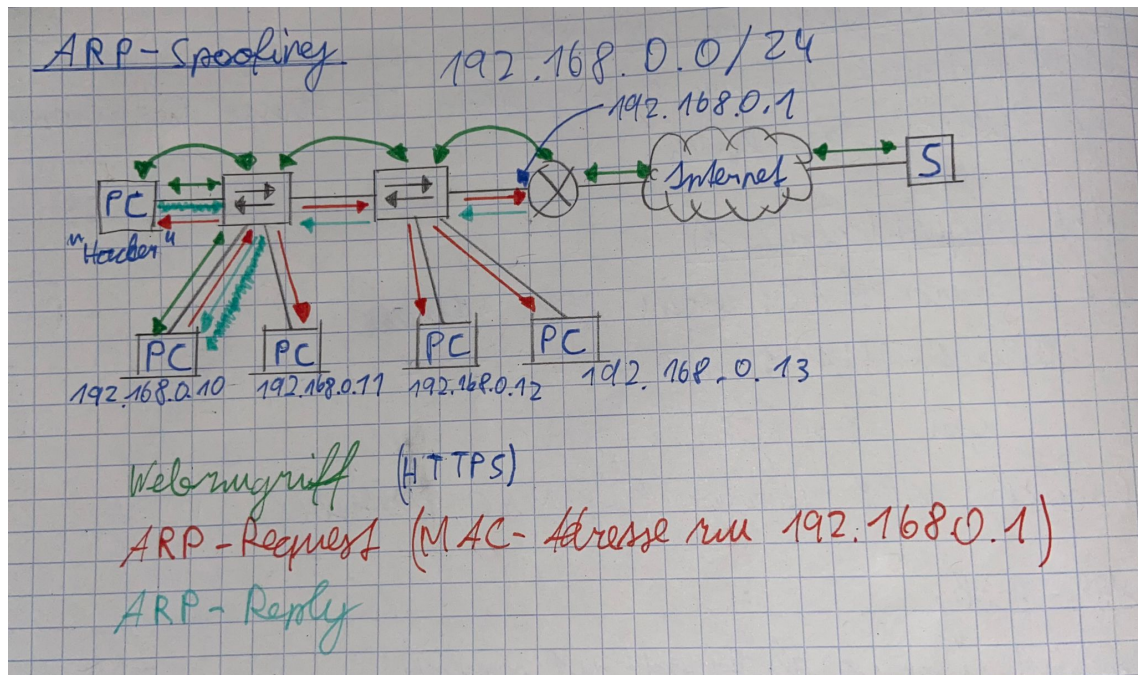 ARP-Spoofing 192.168.0.0/24
192.168.0.1
PC
Internet
S
"Hacker"
PC PC PC PC
192.168.0.10 192.168.0.11 192.168.0.12 192.168.0.13
Webzugriff (HTTPS)
ARP-Request (MAC-Adresse zu 192.168.0.1)
ARP-Reply